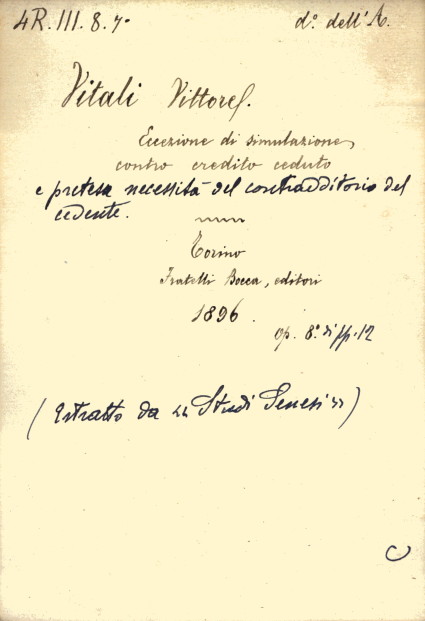 4R.III.8.7. d.º dell'A.
Vitali Vittore.
Eccezione di simulazione
contro credito ceduto
e pretesa necessità del contradditorio del
cedente.
Torino
Fratelli Bocca, editori
1896.
op. 8.º di pp. 12
(Estratto da "Studi Senesi")